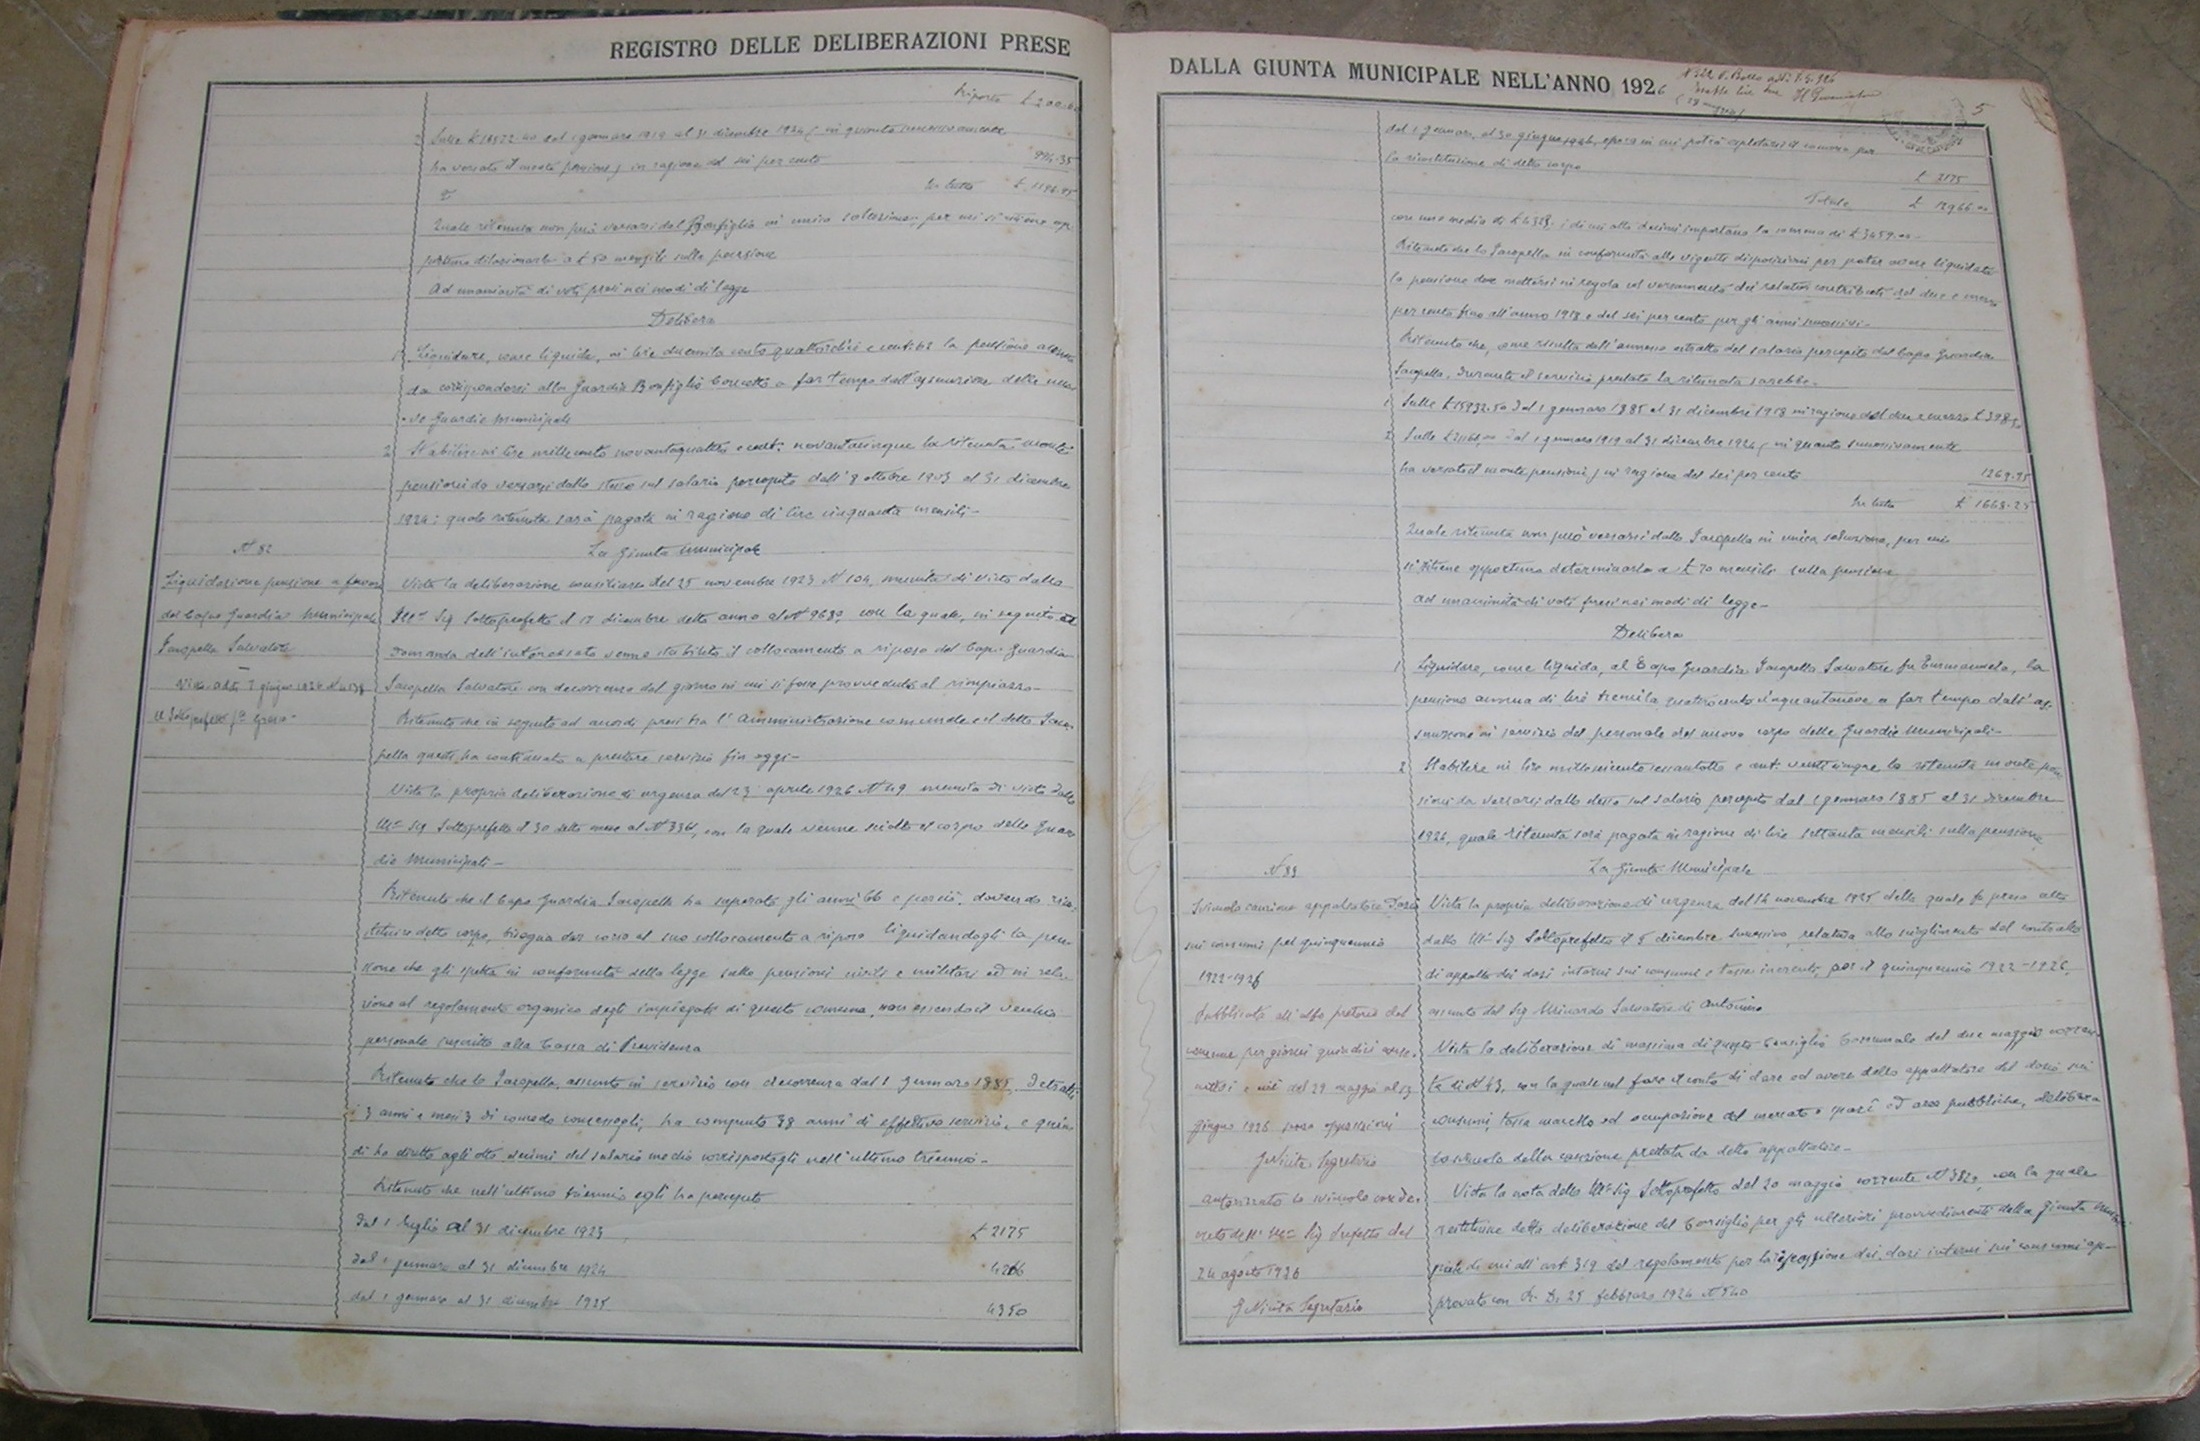 REGISTRO DELLE DELIBERAZIONI PRESE
Riporto £
2 Sulle £ 16572.40 dal 1 gennaio 1919 al 31 dicembre 1924 (in quanto successivamente
ha versato il monte pensioni) in ragione del sei per cento
In tutto £ 1194.95
Quale ritenuta non può versarsi dal Bonfiglio in unica soluzione, per cui si ritiene op-
portuno dilazionarla a £ 50 mensili sulla pensione
Ad unanimità di voti presi nei modi di legge
Delibera
1 Liquidare, come liquida, in lire duemila cento quattordici e cent. 62 la pensione annua
da corrispondersi alla Guardia Bonfiglio Concetto a far tempo dall'assunzione delle nuo-
ve Guardie Municipali
2 Stabilire in lire millecento novantaquattro e cent. novantacinque la ritenuta monte
pensioni da versarsi dallo stesso sul salario percepito dall'8 ottobre 1903 al 31 dicembre
1924: quale ritenuta sarà pagata in ragione di lire cinquanta mensili -
N 82
La Giunta Municipale
Liquidazione pensione a favore
del Capo Guardia Municipale
Iacopella Salvatore
Visto addì 7 giugno 1926 N
Il Sottoprefetto
Vista la deliberazione consiliare del 25 novembre 1923 N 104, munita di visto dello
Ill.mo Sig Sottoprefetto il 17 dicembre detto anno al N 9630 con la quale, in seguito a
domanda dell'interessato venne stabilito il collocamento a riposo del Capo Guardia
Iacopella Salvatore con decorrenza dal giorno in cui si fosse provveduto al rimpiazzo -
Ritenuto che in seguito ad accordi presi tra l'Amministrazione comunale ed il detto Iaco-
pella questi ha continuato a prestare servizio fin oggi -
Vista la propria deliberazione di urgenza del 23 aprile 1926 N 49 munita di visto dallo
Ill.mo Sig Sottoprefetto il 30 detto mese al N 3361, con la quale venne sciolto il corpo delle Guar-
die Municipali -
Ritenuto che il Capo Guardia Iacopella ha superato gli anni 66 e perciò, dovendo rico-
stituire detto corpo, bisogna dar corso al suo collocamento a riposo liquidandogli la pen-
sione che gli spetta in conformità della legge sulle pensioni civili e militari ed in rela-
zione al regolamento organico degli impiegati di questo comune, non essendo il vecchio
personale inscritto alla Cassa di Previdenza
Ritenuto che lo Iacopella, assunto in servizio con decorrenza dal 1 gennaio 1885, detratti
i 3 anni e mesi 3 di congedo concessogli, ha compiuto 38 anni di effettivo servizio, e quin-
di ha diritto agli otto decimi del salario medio corrispostogli nell'ultimo triennio -
Ritenuto che nell'ultimo triennio egli ha percepito
dal 1 luglio al 31 dicembre 1923 £ 2175
dal 1 gennaio al 31 dicembre 1924 4266
dal 1 gennaio al 31 dicembre 1925 4350
DALLA GIUNTA MUNICIPALE NELL'ANNO 1926
5
dal 1 gennaio al 30 giugno 1926, epoca in cui potrà espletarsi il concorso per
la ricostituzione di detto corpo £ 2175
Totale £ 12966.00
con una media di £ 4322: i di cui otto decimi importano la somma di £ 3459.00 -
Ritenuto che lo Iacopella in conformità alle vigenti disposizioni per poter avere liquidata
la pensione deve mettersi in regola col versamento dei relativi contributi del due e mezzo
per cento fino all'anno 1918 e del sei per cento per gli anni successivi -
Ritenuto che, come risulta dall'annesso estratto del salario percepito dal Capo Guardia
Iacopella, durante il servizio prestato la ritenuta sarebbe -
1 Sulle £ 15932.50 dal 1 gennaio 1885 al 31 dicembre 1918 in ragione del due e mezzo £ 398.30
2 Sulle £ dal 1 gennaio 1919 al 31 dicembre 1924 (in quanto successivamente
ha versato il monte pensioni) in ragione del sei per cento 1269.95
In tutto £ 1668.25
Quale ritenuta non può versarsi dallo Iacopella in unica soluzione, per cui
si ritiene opportuno determinarla a £ 70 mensili sulla pensione
Ad unanimità di voti presi nei modi di legge -
Delibera
1 Liquidare, come liquida, al Capo Guardia Iacopella Salvatore fu Emmanuele, la
pensione annua di lire tremila quattrocento cinquantanove a far tempo dall'as-
sunzione in servizio del personale del nuovo corpo delle Guardie Municipali -
2 Stabilire in lire milleseicento sessantotto e cent. venticinque la ritenuta monte pen-
sioni da versarsi dallo stesso sul salario percepito dal 1 gennaio 1885 al 31 dicembre
1924, quale ritenuta sarà pagata in ragione di lire settanta mensili sulla pensione
N 83
La Giunta Municipale
Svincolo cauzione appaltatore Dazio
sui consumi pel quinquennio
1922-1926
Pubblicata all'albo pretorio del
comune per giorni quindici conse-
cutivi e cioè dal 29 maggio al 13
giugno 1926 senza opposizioni
Segretario
Autorizzato lo svincolo con de-
creto dell'Ill.mo Sig Prefetto del
24 agosto 1926
Segretario
Vista la propria deliberazione di urgenza del 14 novembre 1925 della quale fu preso atto
dallo Ill.mo Sig Sottoprefetto il 5 dicembre successivo, relativa allo scioglimento del contratto
di appalto dei dazi interni sui consumi e tasse inerenti, per il quinquennio 1922-1926,
assunto dal Sig Minardo Salvatore di Antonino
Vista la deliberazione di massima di questo Consiglio Comunale del due maggio corren-
te di N 43, con la quale nel fare il conto di dare ed avere dello appaltatore del dazio sui
consumi, tassa macello ed occupazione del mercato e spazi ed aree pubbliche, delibera
lo svincolo della cauzione prestata da detto appaltatore -
Vista la nota dello Ill.mo Sig Sottoprefetto del 20 maggio corrente N 3820, con la quale
restituisce detta deliberazione del Consiglio per gli ulteriori provvedimenti della Giunta Munici-
pale di cui all'art. 319 del regolamento per la riscossione dei dazi interni sui consumi ap-
provato con R. D. 25 febbraro 1924 N 540